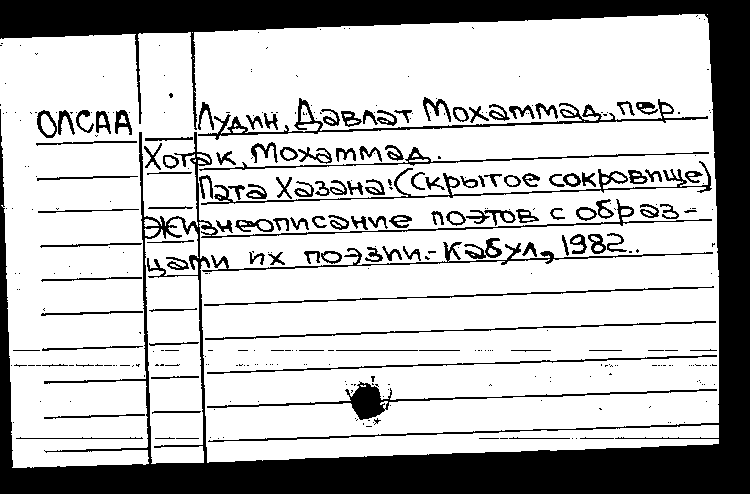 ОЛСАА Лудин, Давлат Мохаммад., пер.
Хотак, Мохаммад.
Пата Хазана: (Скрытое сокровище)
жизнеописание поэтов с образ-
цами их поэзии.- Кабул, 1982..